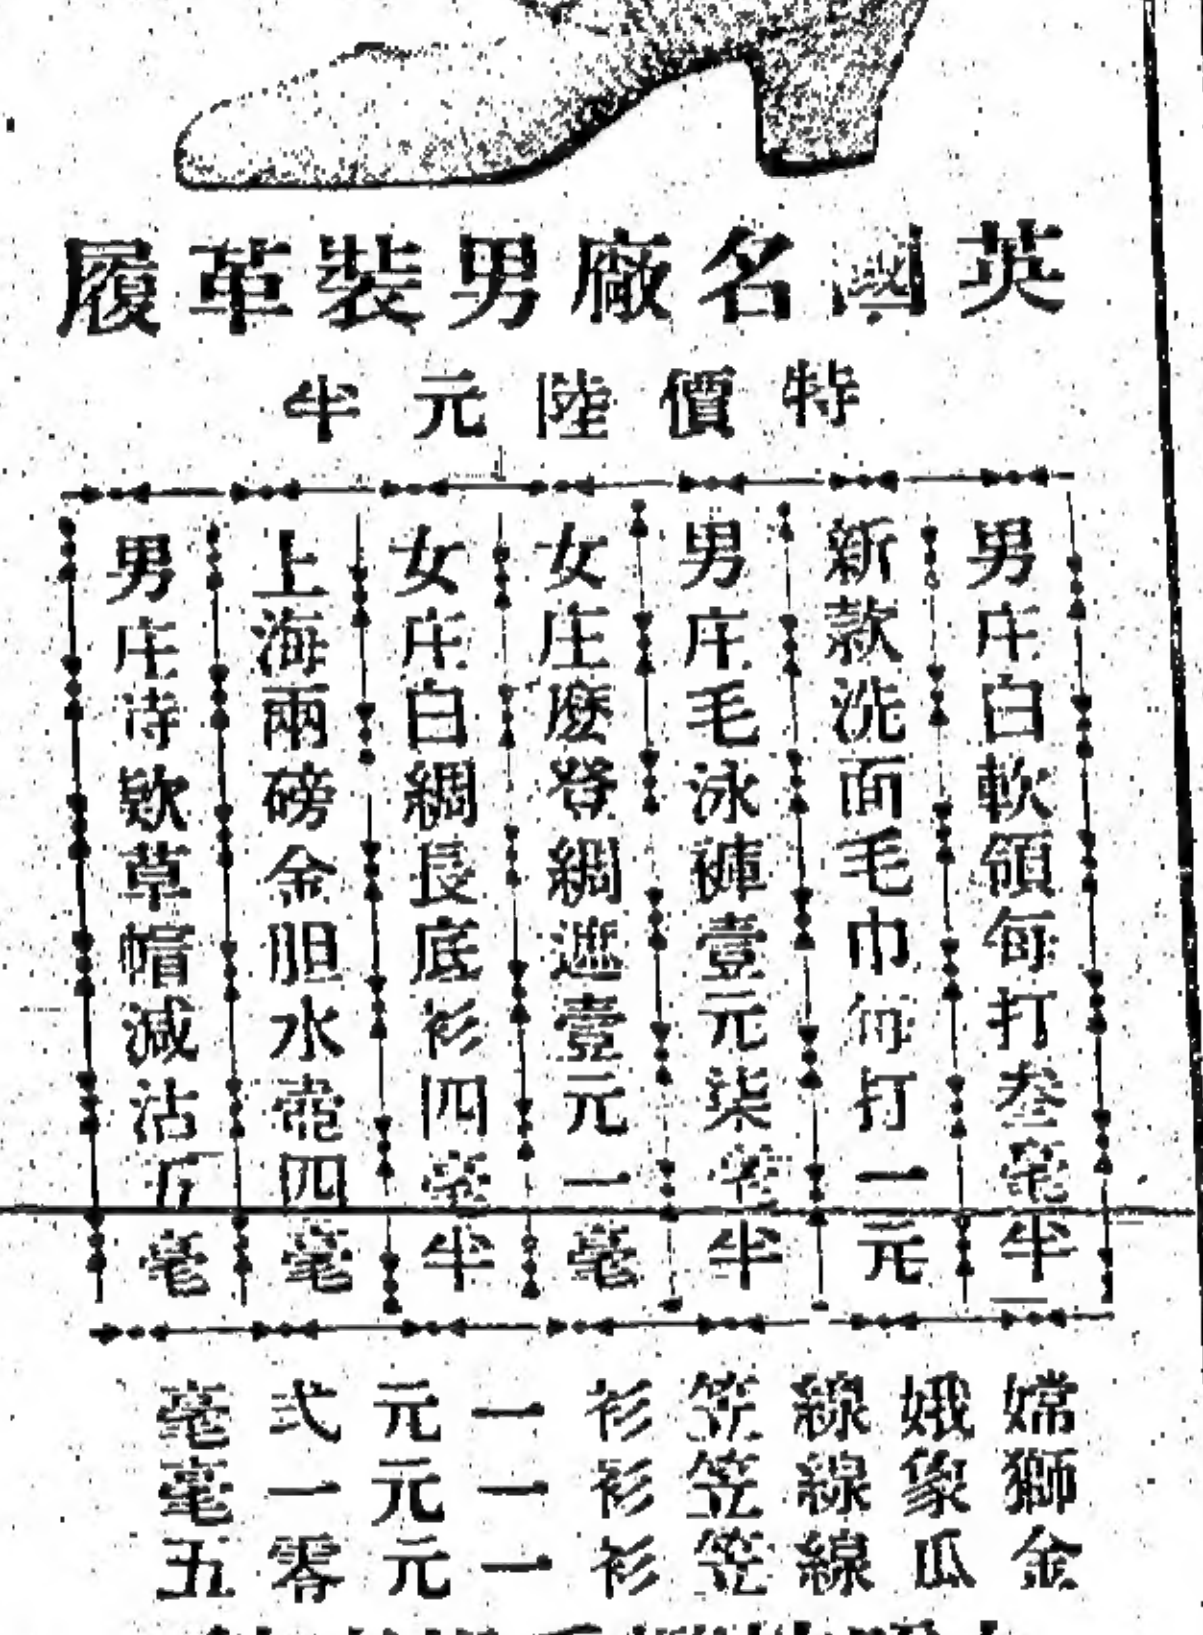 英國名廠男裝革履
特價陸元半
男庄白軟領每打叁毫半
新款洗面毛巾每打一元
男庄毛泳褲壹元柒毫半
女庄麼登綢遮壹元一毫
女庄白綢長底衫四毫半
上海兩磅金胆水壺四毫
男庄時款草帽減沽五毫
嫦娥線笠衫一元弍毫
獅象線笠衫一元一毫
金瓜線笠衫一元零五